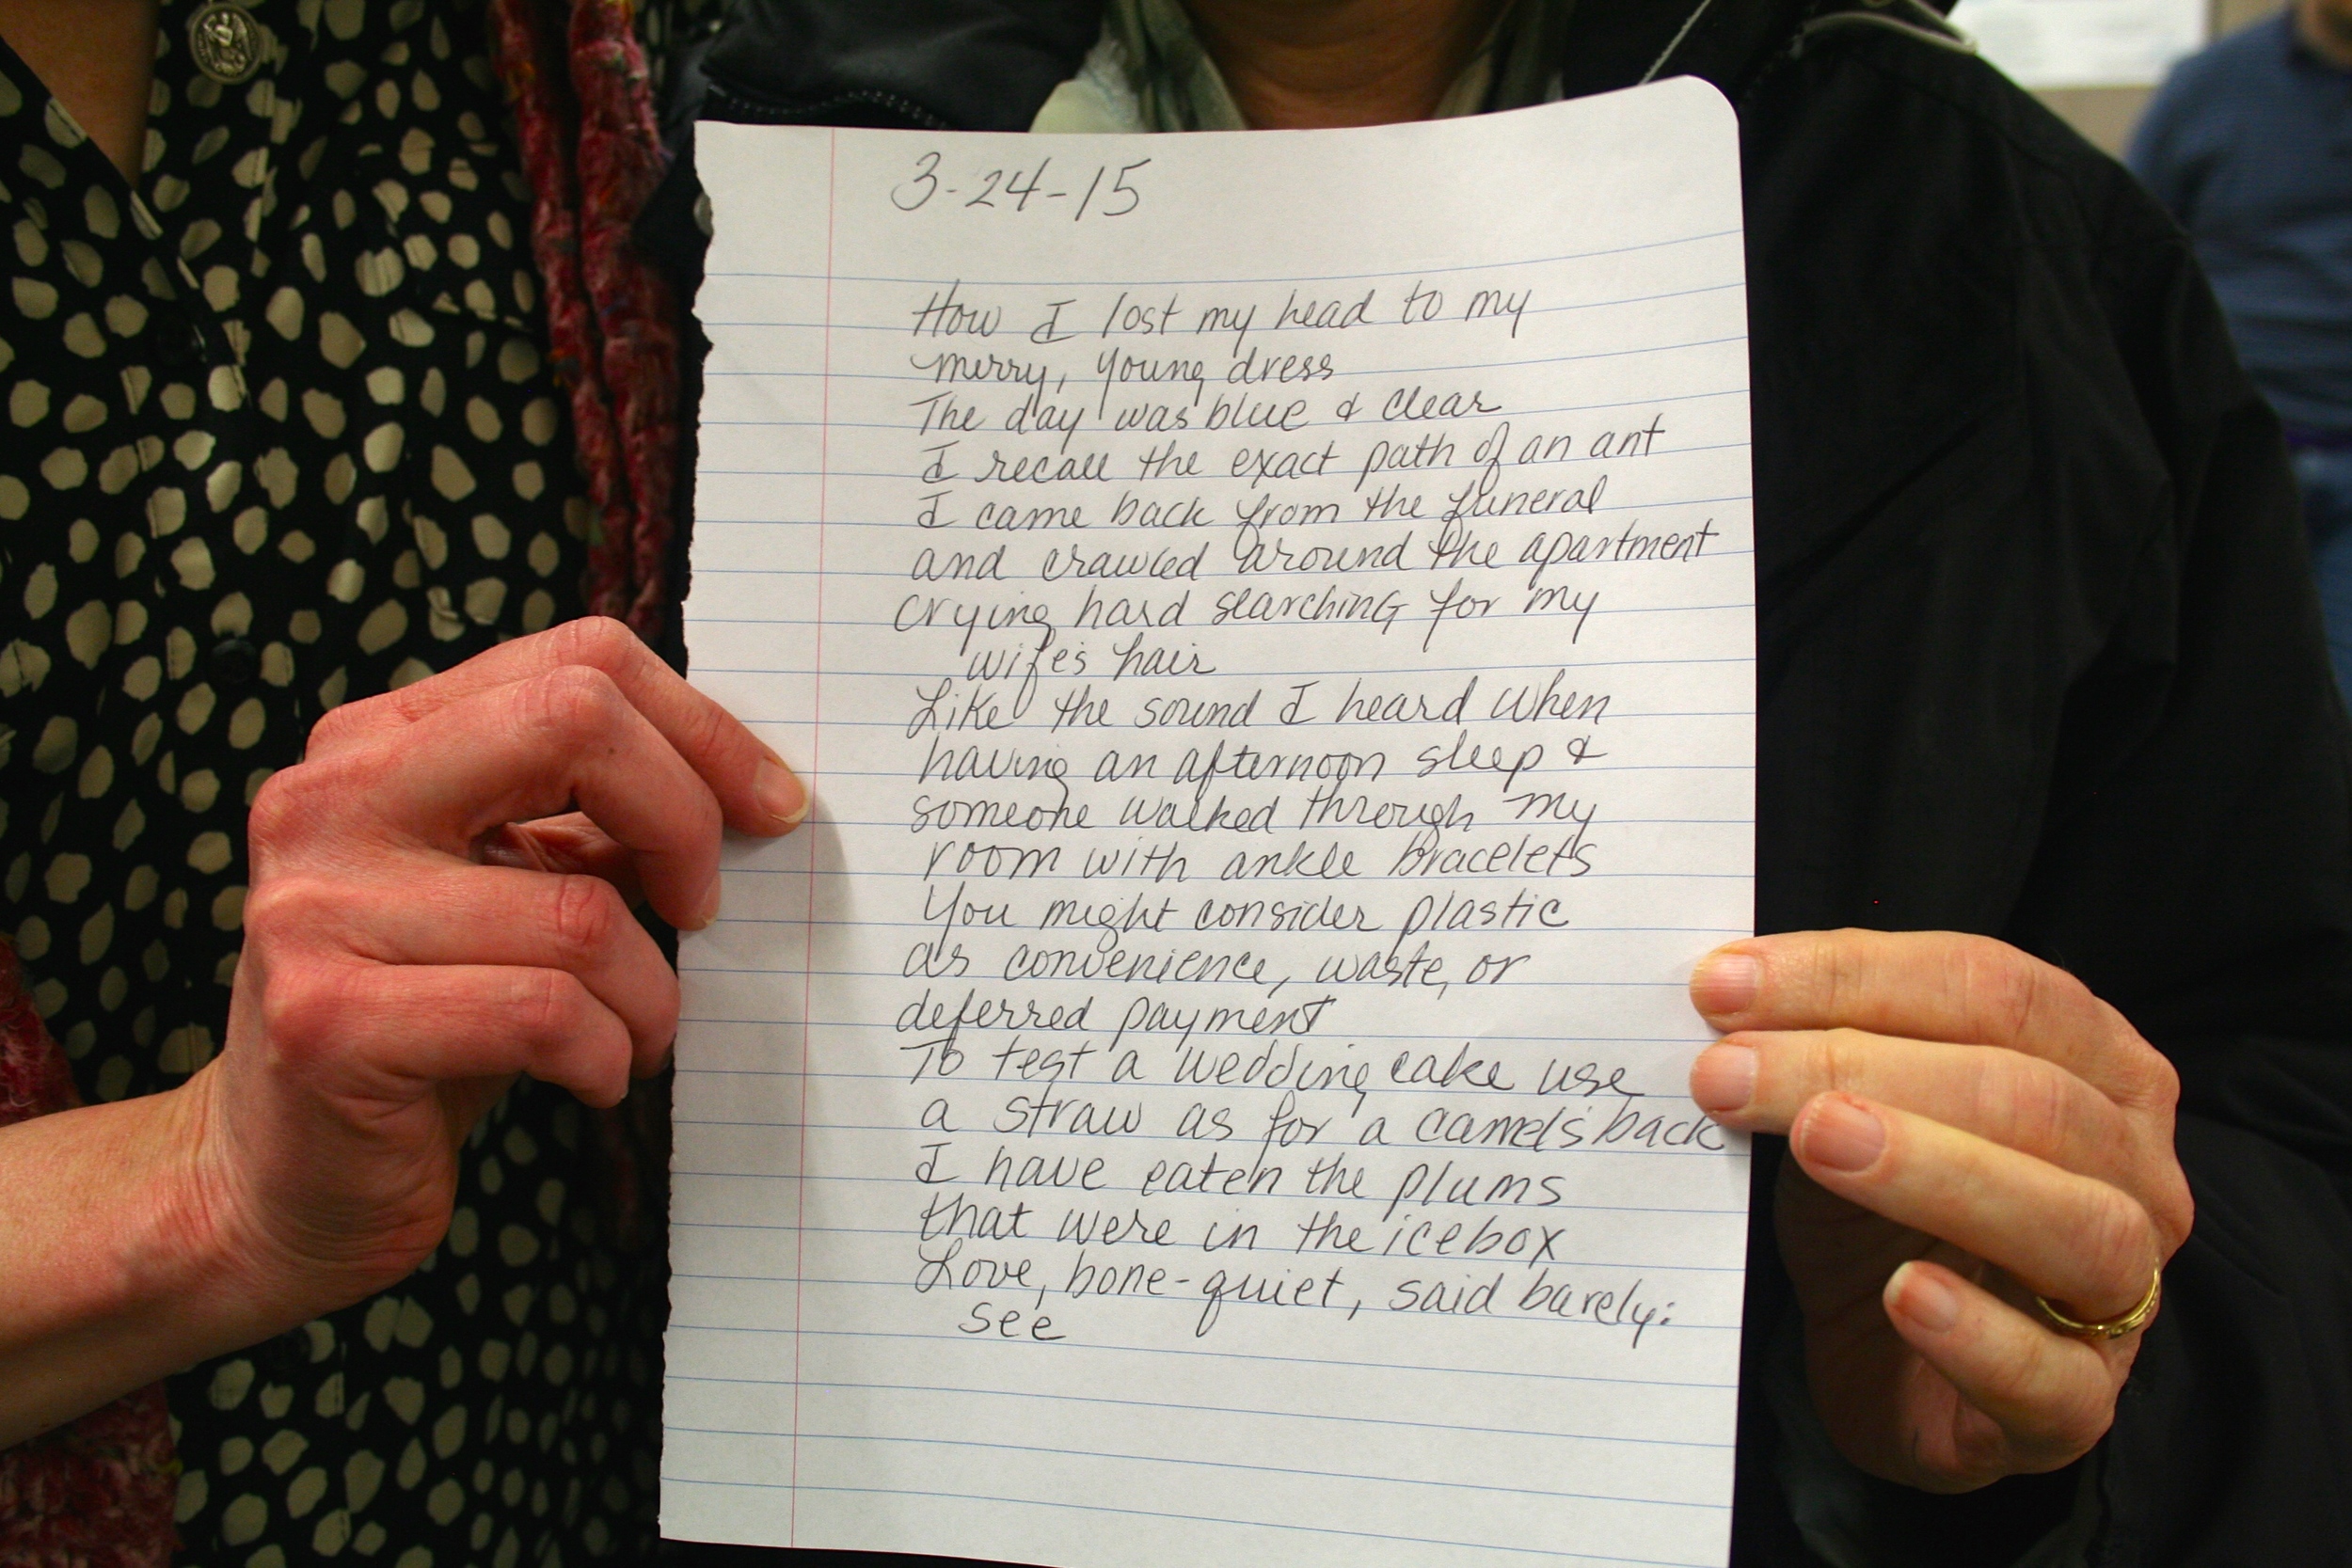 3-24-15
How I lost my head to my
merry, young dress
The day was blue & clear
I recall the exact path of an ant
I came back from the funeral
and crawled around the apartment
crying hard searching for my
wife's hair
Like the sound I heard when
having an afternoon sleep &
someone walked through my
room with ankle bracelets
You might consider plastic
as convenience, waste, or
deferred payment
To test a wedding cake use
a straw as for a camel's back
I have eaten the plums
that were in the icebox
Love, bone-quiet, said barely:
see